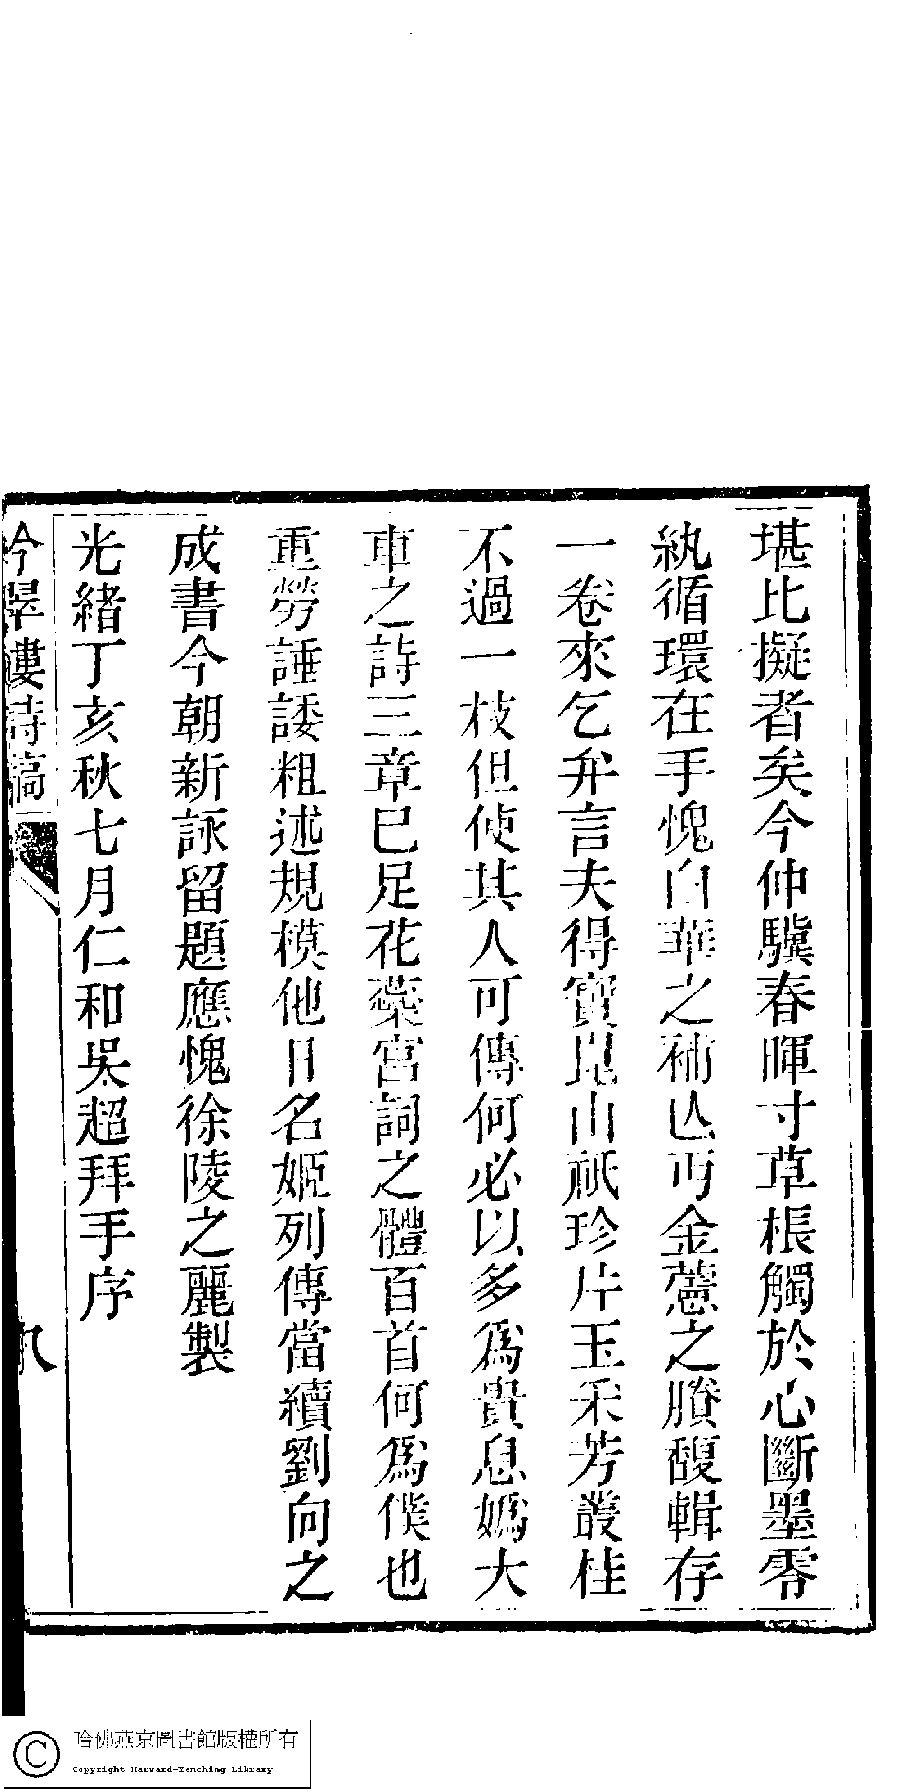 堪比擬者矣今仲驥春暉寸草棖觸於心斷墨零
紈循環在手愧白華之補亾丐金薏之賸馥輯存
一卷來乞弁言夫得寶崑山祇珍片玉采芳叢桂
不過一枝但使其人可傳何必以多爲貴息嬀大
車之詩三章已足花蘂宮詞之體百首何爲僕也
重勞諈諉粗述規模他日名姬列傳當續劉向之
成書今朝新詠留題應愧徐陵之麗製
光緒丁亥秋七月仁和吳超拜手序
吟翠樓詩稿
哈佛燕京圖書館版權所有
Copyright Harvard-Yenching Library